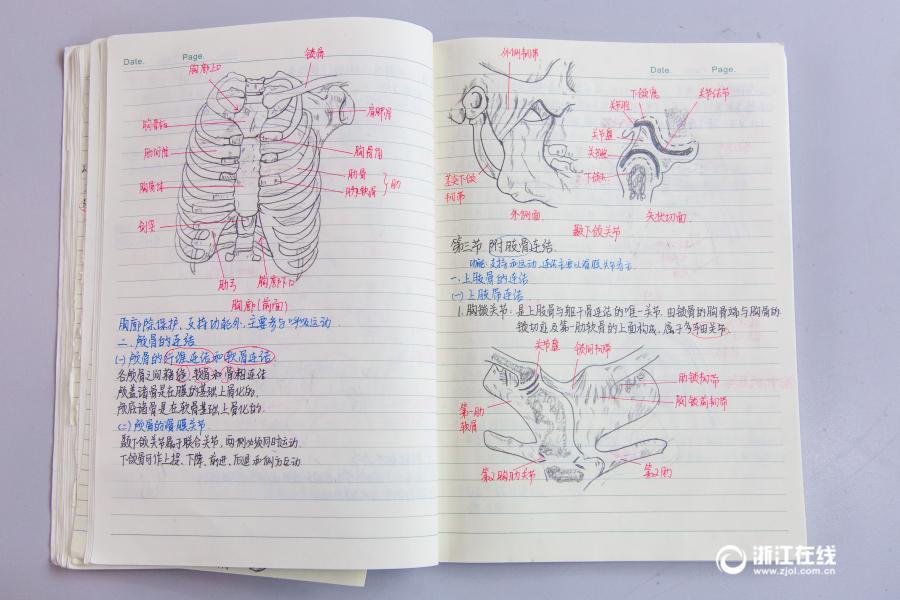 Date.
Page.
胸廓上口
锁骨
肩胛骨
胸骨柄
肋间隙
胸骨体
剑突
胸骨角
肋骨
肋软骨
肋
肋弓
胸廓下口
胸廓(前面)
胸廓除保护、支持功能外,主要参与呼吸运动.
二、颅骨的连结
(一)颅骨的纤维连结和软骨连结.
各颅骨之间借缝、软骨和骨相连结
颅盖诸骨是在膜的基础上骨化的
颅底诸骨是在软骨基础上骨化的.
(二)颅骨的滑膜关节.
颞下颌关节属于联合关节,两侧必须同时运动.
下颌骨可作上提、下降、前进、后退和侧方运动.
Date.
Page.
外侧韧带
茎突下颌
韧带
外侧面
下颌窝
关节结节
关节腔
关节盘
关节腔
下颌头
矢状切面
颞下颌关节
第三节 附肢骨连结.
功能:支持和运动,连结主要以滑膜关节为主
一、上肢骨的连结
(一)上肢带连结
1.胸锁关节:是上肢骨与躯干骨连结的唯一关节.由锁骨的胸骨端与胸骨的
锁切迹及第一肋软骨的上面构成,属于多轴关节.
关节盘
锁间韧带
肋锁韧带
胸锁前韧带
第一肋
软骨
第2胸肋关节
第2肋
浙江在线
www.zjol.com.cn